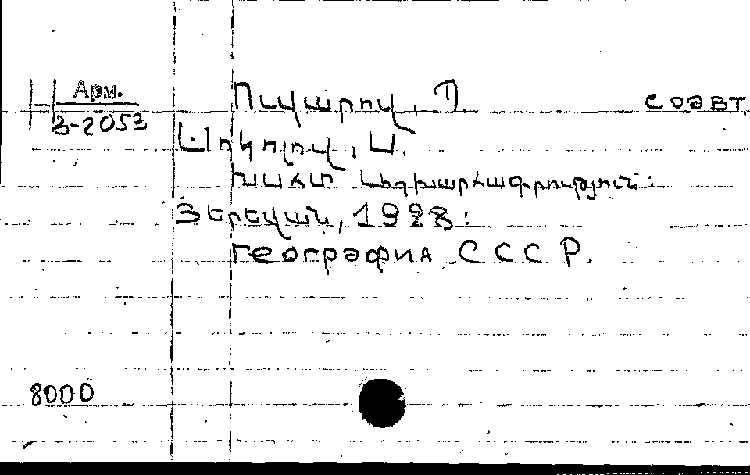 Арм.
3-2053
Ուվարով, Պ. соавт.
Սոկոլով, Ա.
ԽՍՀՄ աշխարհագրություն:
Յերեվան, 1928:
География СССР.
8000